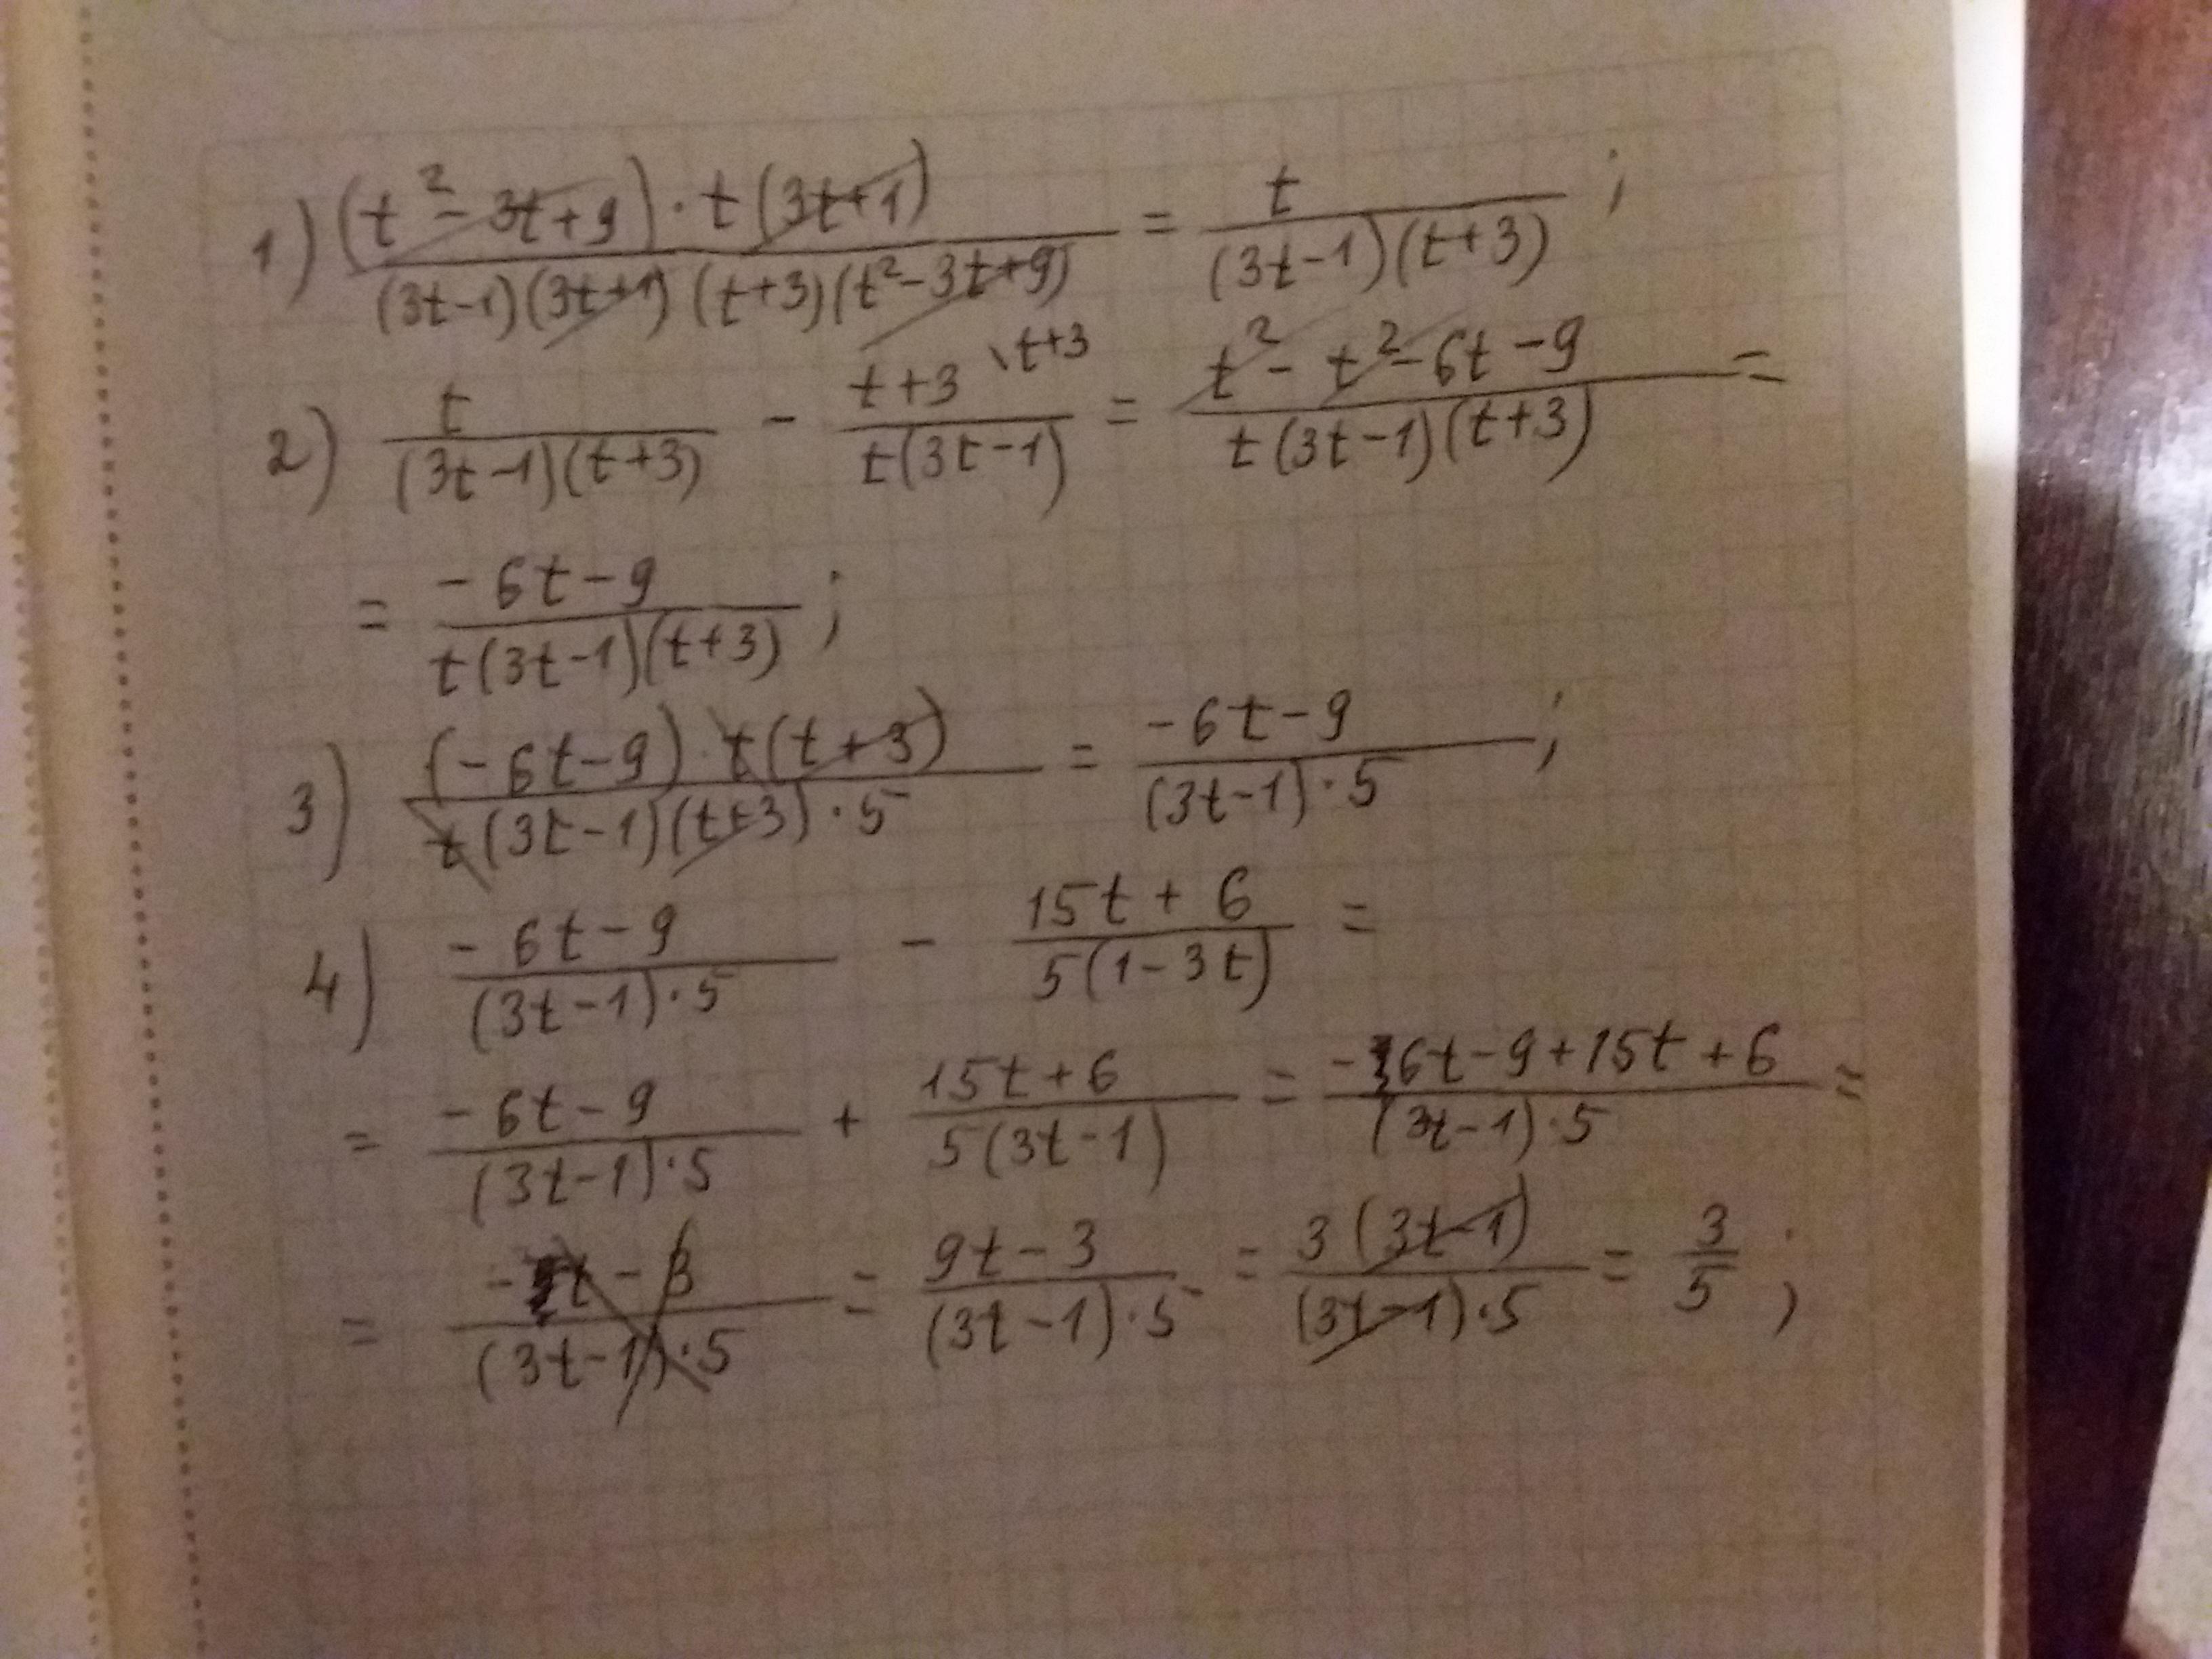 1) (t² - 3t + 9) · t(3t+1) / (3t-1)(3t+1)(t+3)(t²-3t+9) = t / (3t-1)(t+3) ;
2) t / (3t-1)(t+3) - t+3 \t+3 / t(3t-1) = t² - t² - 6t - 9 / t(3t-1)(t+3) =
= -6t-9 / t(3t-1)(t+3) ;
3) (-6t-9) · t(t+3) / t(3t-1)(t+3) · 5 = -6t-9 / (3t-1) · 5 ;
4) -6t-9 / (3t-1) · 5 - 15t + 6 / 5(1-3t) =
= -6t-9 / (3t-1) · 5 + 15t+6 / 5(3t-1) = -6t-9+15t+6 / (3t-1) · 5 =
= / (3t-1) · 5 = 9t-3 / (3t-1) · 5 = 3(3t-1) / (3t-1) · 5 = 3 / 5 ;